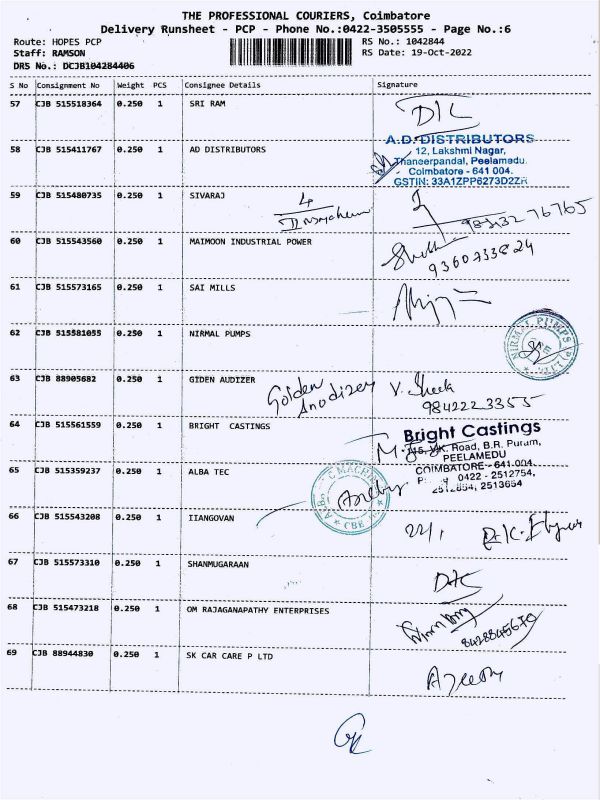 THE PROFESSIONAL COURIERS, Coimbatore
Delivery Runsheet - PCP - Phone No.:0422-3505555 - Page No.:6
Route: HOPES PCP RS No.: 1042844
Staff: RAMSON RS Date: 19-Oct-2022
DRS No.: DCJB104284406
S No Consignment No Weight PCS Consignee Details Signature
57 CJB 515518364 0.250 1 SRI RAM
58 CJB 515411767 0.250 1 AD DISTRIBUTORS
A.D. DISTRIBUTORS
12, Lakshmi Nagar,
Thaneerpandal, Peelamedu.
Coimbatore - 641 004.
GSTIN: 33A1ZPP6273D2ZR
59 CJB 515480735 0.250 1 SIVARAJ
60 CJB 515543560 0.250 1 MAIMOON INDUSTRIAL POWER
9360733824
61 CJB 515573165 0.250 1 SAI MILLS
62 CJB 515581055 0.250 1 NIRMAL PUMPS
NIRMAL PUMPS
63 CJB 88905682 0.250 1 GIDEN AUDIZER
Golden Anodizer
9842223355
64 CJB 515561559 0.250 1 BRIGHT CASTINGS
Bright Castings
Road, B.R. Puram,
PEELAMEDU
COIMBATORE - 641 004.
0422 - 2512754,
2513654
65 CJB 515359237 0.250 1 ALBA TEC
CBE
66 CJB 515543208 0.250 1 IIANGOVAN
67 CJB 515573310 0.250 1 SHANMUGARAAN
68 CJB 515473218 0.250 1 OM RAJAGANAPATHY ENTERPRISES
69 CJB 88944830 0.250 1 SK CAR CARE P LTD